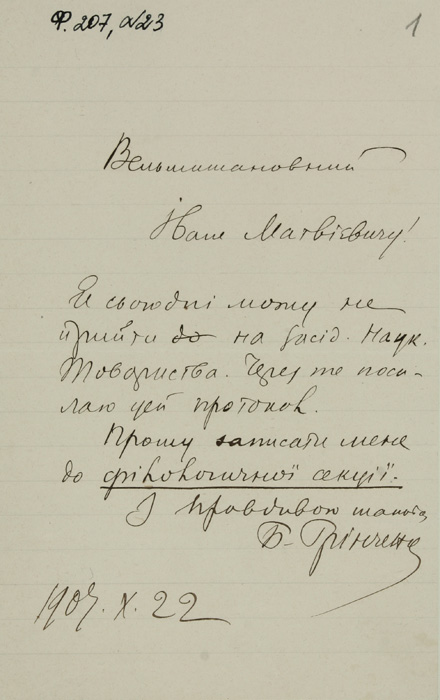 Ф. 207, №23
1
Вельмишановний
Іване Матвієвичу!
Я сьогодні можу не
прийти до на засід. Наук.
Товариства. Через те поси-
лаю цей протокол.
Прошу записати мене
до філологичної секції.
З правдивою шаною,
Б. Грінченко
1907. X. 22